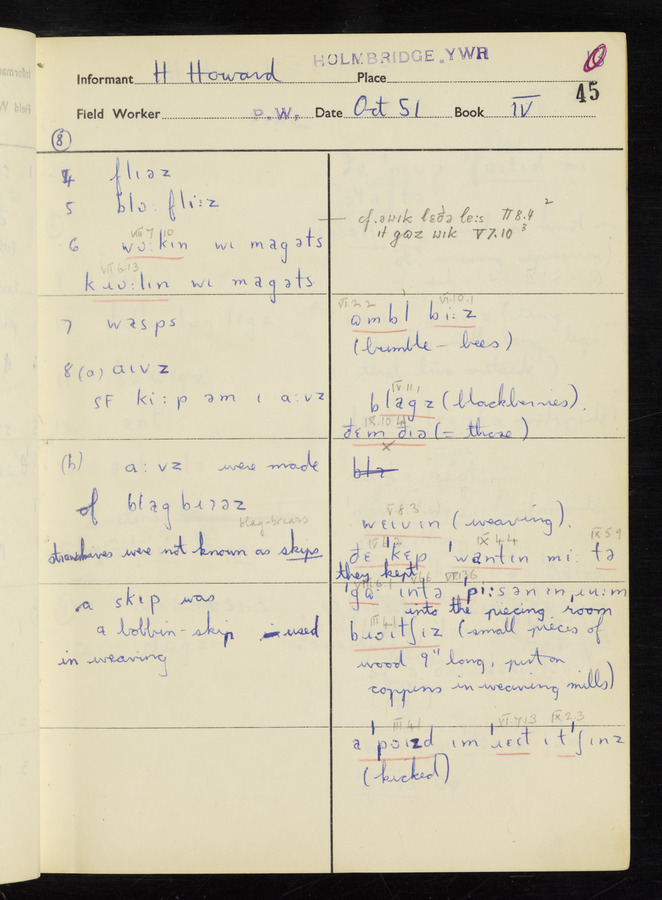 HOLMBRIDGE, YWR
Informant H Howard Place
45
Field Worker P.W. Date Oct 51 Book IV
8
4 flɪəz
5 blɔ: fli:z
6 wɔ:kin wɪ magəts
kɹɔ:lin wɪ magəts
7 wasps
8 (a) aɪvz
SF ki:p əm ɪ a:vz
(b) a:vz were made
of blagbɪrəz
blag-briars
strawhives were not known as skeps
a skɪp was
a bobbin-skip used
in weaving
cf. əwɪk lɛðə le:s II 8.4 2
it gɔəz wɪk V 7.10 3
VI.2.2 VI.10.1
ɔmbl bi:z
(bumble-bees)
IV 11.1
blagz (blackberries).
IX.10.4
ðɛm ðɪə (= those)
V.8.3
weɪvin (weaving).
IX 4.4 IX 5 9
ðe kɛp wantin mi tə
they kept
gɔ: intə pi:sənin ɹu:m
into the piecing room
(small pieces of
wood 9" long, put on
coppins in weaving mills)
III 4.1 VI.7.13 IX 2.3
ə pɔɪzd ɪm ɹɛit ɪ t ʃinz
(kicked)